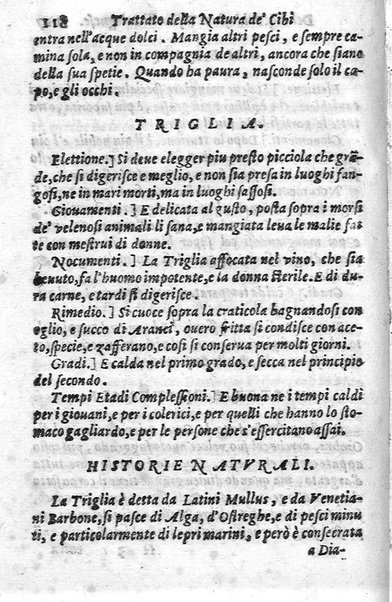 118 Trattato della Natura de' Cibi
entra nell'acque dolci. Mangia altri pesci, e sempre ca-
mina sola, e non in compagnia de altri, ancora che siano
della sua spetie. Quando ha paura, nasconde solo il ca-
po, e gli occhi.
TRIGLIA.
Elettione.] Si deve elegger piu presto picciola che grã-
de, che si digerisce e meglio, e non sia presa in luoghi fan-
gosi, ne in mari morti, ma in luoghi sassosi.
Giovamenti.] E delicata al gusto, posta sopra i morsi
de' velenosi animali li sana, e mangiata leua le malie fat
te con mestrui di donne.
Nocumenti.] La Triglia affocata nel vino, che sia
beuuto, fa l'huomo impotente, e la donna sterile. E di du-
ra carne, e tardi si digerisce.
Rimedio.] Si cuoce sopra la craticola bagnandosi con
oglio, e succo di Aranci, ouero fritta si condisce con ace-
to, specie, e zafferano, e cosi si conserua per molti giorni.
Gradi.] E calda nel primo grado, e secca nel principio
del secondo.
Tempi Etadi Complessioni.] E buona ne i tempi caldi
per i giouani, e per i colerici, e per quelli che hanno lo sto-
maco gagliardo, e per le persone che s'essercitano assai.
HISTORIE NATVRALI.
La Triglia è desta da Latini Mullus, e da Venetia-
ni Barbone, si pasce di Alga, d'Ostreghe, e di pesci minu
ti, e particolarmente di lepri marini, e però è consecrata
a Dia-